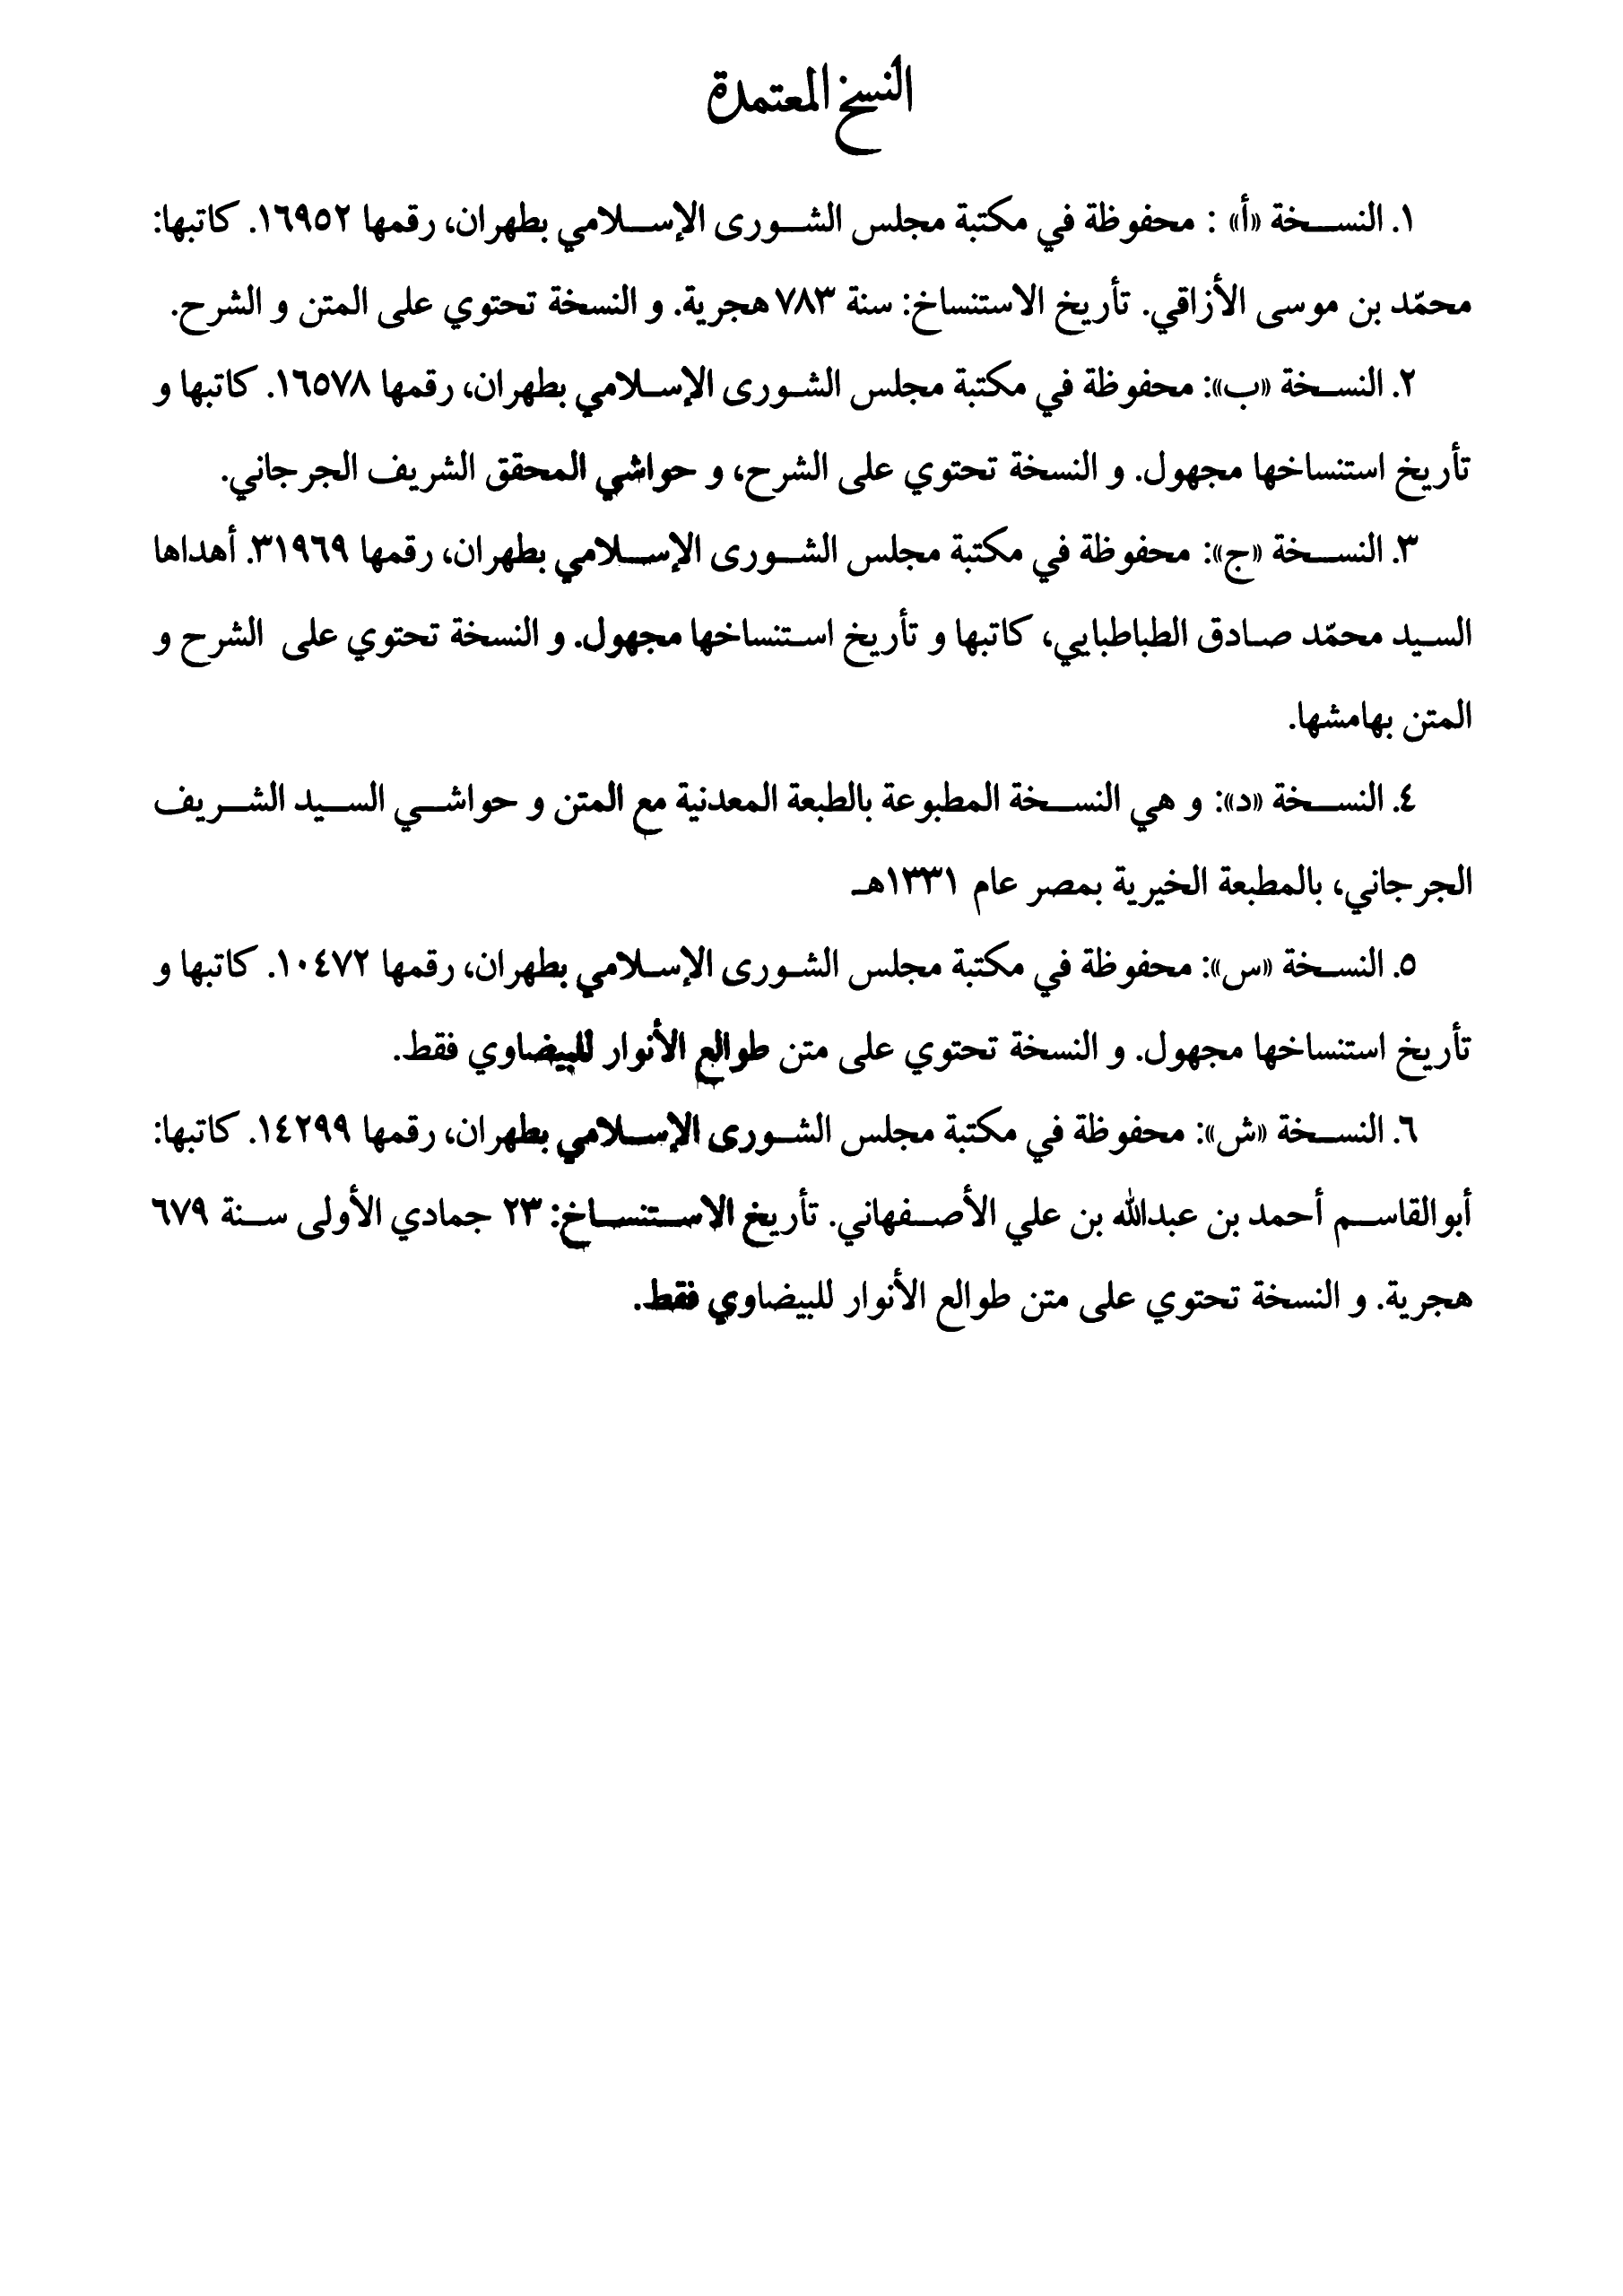 النسخ المعتمدة
١. النسخة «أ» : محفوظة في مكتبة مجلس الشورى الإسلامي بطهران، رقمها ١٦٩٥٢. كاتبها:
محمّد بن موسى الأزاقي. تأريخ الاستنساخ: سنة ٧٨٣ هجرية. و النسخة تحتوي على المتن و الشرح.
٢. النسخة «ب»: محفوظة في مكتبة مجلس الشورى الإسلامي بطهران، رقمها ١٦٥٧٨. كاتبها و
تأريخ استنساخها مجهول. و النسخة تحتوي على الشرح، و حواشي المحقق الشريف الجرجاني.
٣. النسخة «ج»: محفوظة في مكتبة مجلس الشورى الإسلامي بطهران، رقمها ٣١٩٦٩. أهداها
السيد محمّد صادق الطباطبايي، كاتبها و تأريخ استنساخها مجهول. و النسخة تحتوي على الشرح و
المتن بهامشها.
٤. النسخة «د»: و هي النسخة المطبوعة بالطبعة المعدنية مع المتن و حواشي السيد الشريف
الجرجاني، بالمطبعة الخيرية بمصر عام ١٣٣١هـ
٥. النسخة «س»: محفوظة في مكتبة مجلس الشورى الإسلامي بطهران، رقمها ١٠٤٧٢. كاتبها و
تأريخ استنساخها مجهول. و النسخة تحتوي على متن طوالع الأنوار للبيضاوي فقط.
٦. النسخة «ش»: محفوظة في مكتبة مجلس الشورى الإسلامي بطهران، رقمها ١٤٢٩٩. كاتبها:
أبوالقاسم أحمد بن عبدالله بن علي الأصفهاني. تأريخ الاستنساخ: ٢٣ جمادي الأولى سنة ٦٧٩
هجرية. و النسخة تحتوي على متن طوالع الأنوار للبيضاوي فقط.